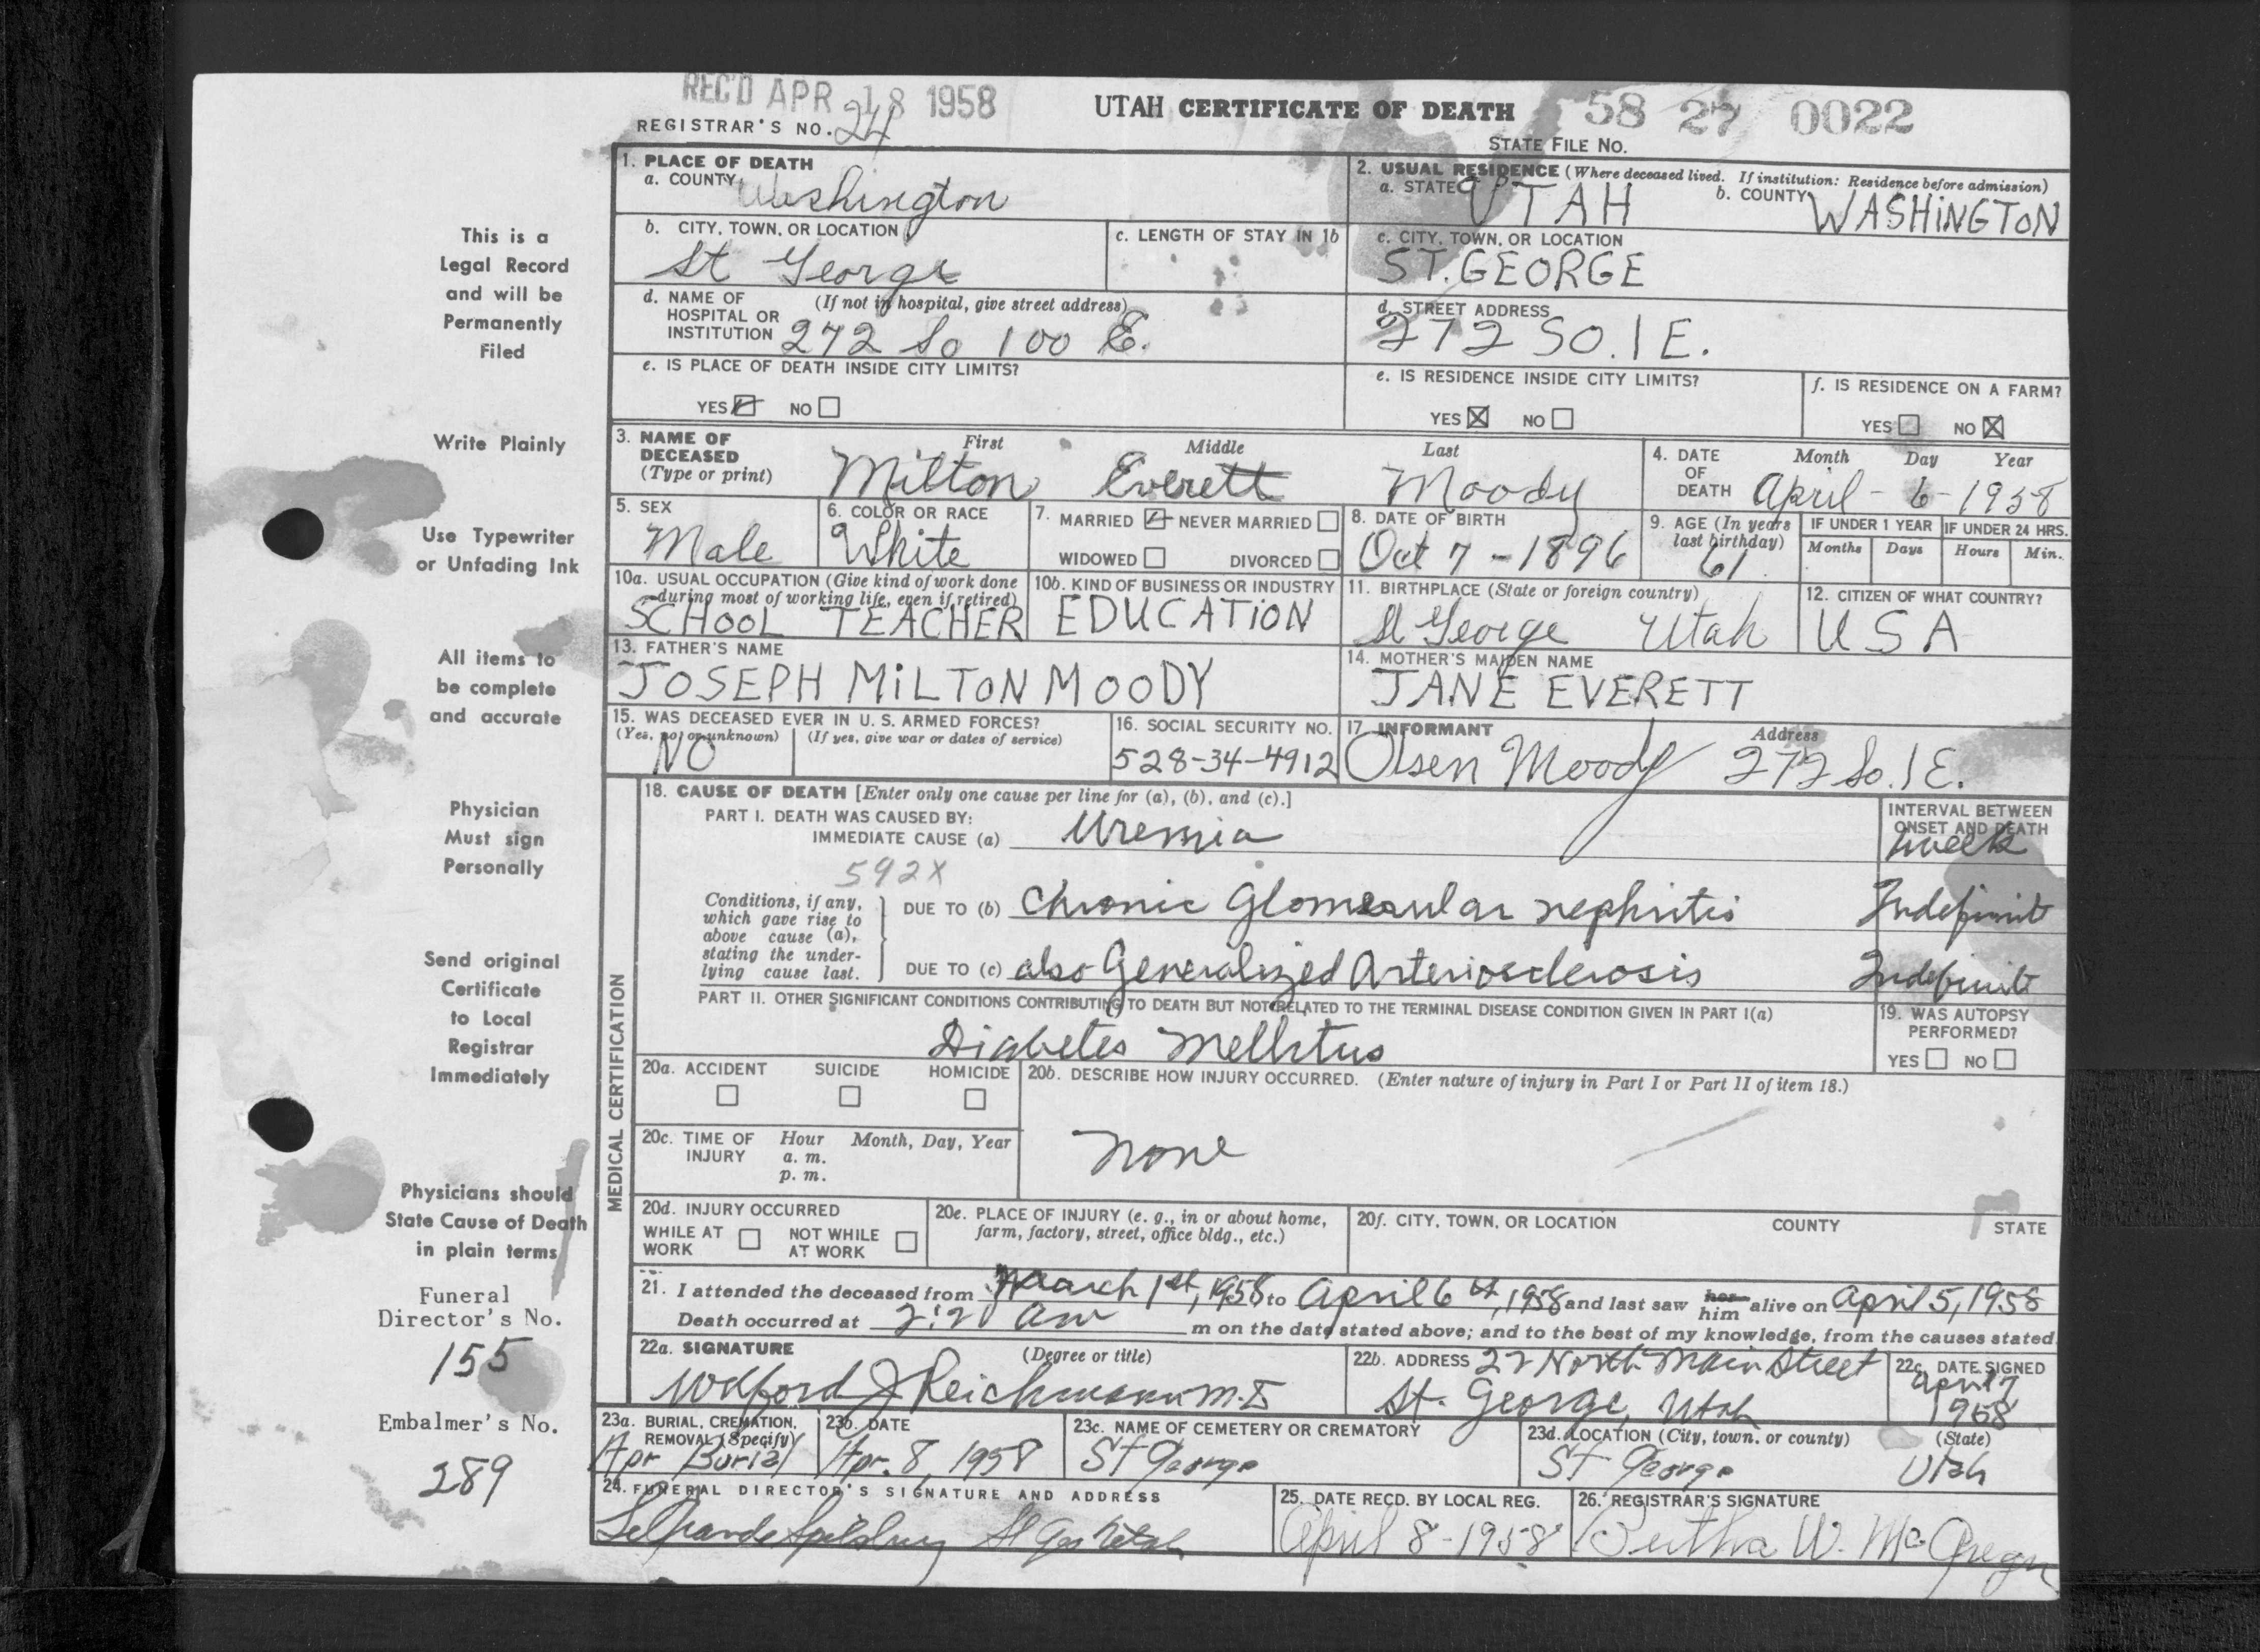 REC'D APR 18 1958
UTAH CERTIFICATE OF DEATH
58 27 0022
REGISTRAR'S NO. 24
STATE FILE NO.
1. PLACE OF DEATH
a. COUNTY Washington
2. USUAL RESIDENCE (Where deceased lived. If institution: Residence before admission)
a. STATE UTAH b. COUNTY WASHINGTON
b. CITY, TOWN, OR LOCATION
St George
c. LENGTH OF STAY IN 1b
c. CITY, TOWN, OR LOCATION
ST. GEORGE
d. NAME OF HOSPITAL OR INSTITUTION (If not in hospital, give street address)
272 So 100 E.
d. STREET ADDRESS
272 SO. 1 E.
e. IS PLACE OF DEATH INSIDE CITY LIMITS?
YES NO
e. IS RESIDENCE INSIDE CITY LIMITS?
YES NO
f. IS RESIDENCE ON A FARM?
YES NO
3. NAME OF DECEASED (Type or print)
First Middle Last
Milton Everett Moody
4. DATE OF DEATH
Month Day Year
April - 6 - 1958
5. SEX
Male
6. COLOR OR RACE
White
7. MARRIED NEVER MARRIED
WIDOWED DIVORCED
8. DATE OF BIRTH
Oct 7 - 1896
9. AGE (In years last birthday)
61
IF UNDER 1 YEAR
Months Days
IF UNDER 24 HRS.
Hours Min.
10a. USUAL OCCUPATION (Give kind of work done during most of working life, even if retired)
SCHOOL TEACHER
10b. KIND OF BUSINESS OR INDUSTRY
EDUCATION
11. BIRTHPLACE (State or foreign country)
St George Utah
12. CITIZEN OF WHAT COUNTRY?
USA
13. FATHER'S NAME
JOSEPH MILTON MOODY
14. MOTHER'S MAIDEN NAME
JANE EVERETT
15. WAS DECEASED EVER IN U. S. ARMED FORCES?
(Yes, no, or unknown) (If yes, give war or dates of service)
NO
16. SOCIAL SECURITY NO.
528-34-4912
17. INFORMANT Address
Olsen Moody 272 So. 1 E.
MEDICAL CERTIFICATION
18. CAUSE OF DEATH [Enter only one cause per line for (a), (b), and (c).]
PART I. DEATH WAS CAUSED BY:
IMMEDIATE CAUSE (a) Uremia
INTERVAL BETWEEN ONSET AND DEATH
week
592X
Conditions, if any, which gave rise to above cause (a), stating the underlying cause last.
DUE TO (b) Chronic Glomerular nephritis Indefinit
DUE TO (c) also Generalized Arteriosclerosis Indefinit
PART II. OTHER SIGNIFICANT CONDITIONS CONTRIBUTING TO DEATH BUT NOT RELATED TO THE TERMINAL DISEASE CONDITION GIVEN IN PART I(a)
Diabetes Mellitus
19. WAS AUTOPSY PERFORMED?
YES NO
20a. ACCIDENT SUICIDE HOMICIDE
20b. DESCRIBE HOW INJURY OCCURRED. (Enter nature of injury in Part I or Part II of item 18.)
none
20c. TIME OF INJURY
Hour Month, Day, Year
a. m.
p. m.
20d. INJURY OCCURRED
WHILE AT WORK NOT WHILE AT WORK
20e. PLACE OF INJURY (e. g., in or about home, farm, factory, street, office bldg., etc.)
20f. CITY, TOWN, OR LOCATION COUNTY STATE
21. I attended the deceased from March 1st, 1958 to April 6th, 1958 and last saw her him alive on April 5, 1958
Death occurred at 2:20 am m on the date stated above; and to the best of my knowledge, from the causes stated.
22a. SIGNATURE (Degree or title)
Wilford J Reichmann M.D.
22b. ADDRESS 22 North Main Street
St. George, Utah
22c. DATE SIGNED
April 7
1958
23a. BURIAL, CREMATION, REMOVAL (Specify)
Apr Burial
23b. DATE
Apr. 8, 1958
23c. NAME OF CEMETERY OR CREMATORY
St George
23d. LOCATION (City, town, or county) (State)
St George Utah
24. FUNERAL DIRECTOR'S SIGNATURE AND ADDRESS
Spilsbury St Geo Utah
25. DATE RECD. BY LOCAL REG.
April 8 - 1958
26. REGISTRAR'S SIGNATURE
Bertha W. McGregor
This is a
Legal Record
and will be
Permanently
Filed
Write Plainly
Use Typewriter
or Unfading Ink
All items to
be complete
and accurate
Physician
Must sign
Personally
Send original
Certificate
to Local
Registrar
Immediately
Physicians should
State Cause of Death
in plain terms
Funeral
Director's No.
155
Embalmer's No.
289